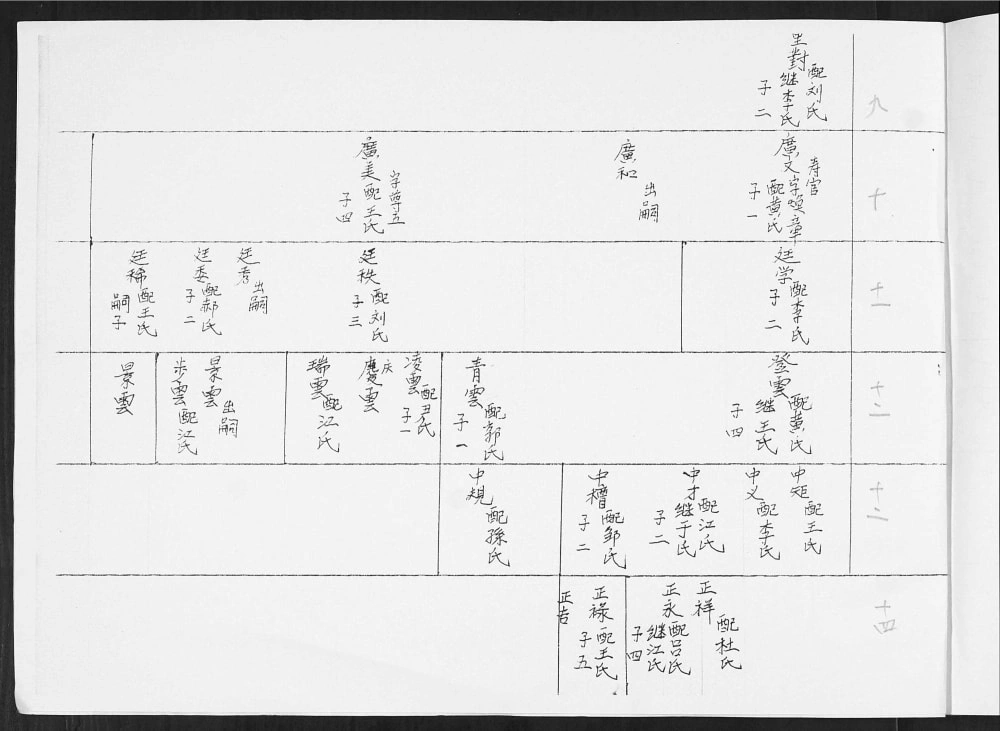 九
對 配刘氏
继李氏
子二
十
廣文 寿官
字煥章
配黄氏
子一
廣和 出嗣
廣美 字尊五
配王氏
子四
十一
廷学 配李氏
子二
廷秩 配刘氏
子三
廷秀 出嗣
廷委 配郝氏
子二
廷稀 配王氏
嗣子
十二
登雲 配黄氏
继王氏
子四
青雲 配郭氏
子一
凌雲 配尹氏
子一
慶雲 庆
瑞雲 配江氏
景雲 出嗣
步雲 配江氏
景雲
十三
中矩 配王氏
中义 配李氏
中才 配江氏
继于氏
子二
中槽 配邹氏
子二
中規 配孫氏
十四
正祥 配杜氏
正永 配吕氏
继江氏
子四
正禄 配王氏
子五
正吉